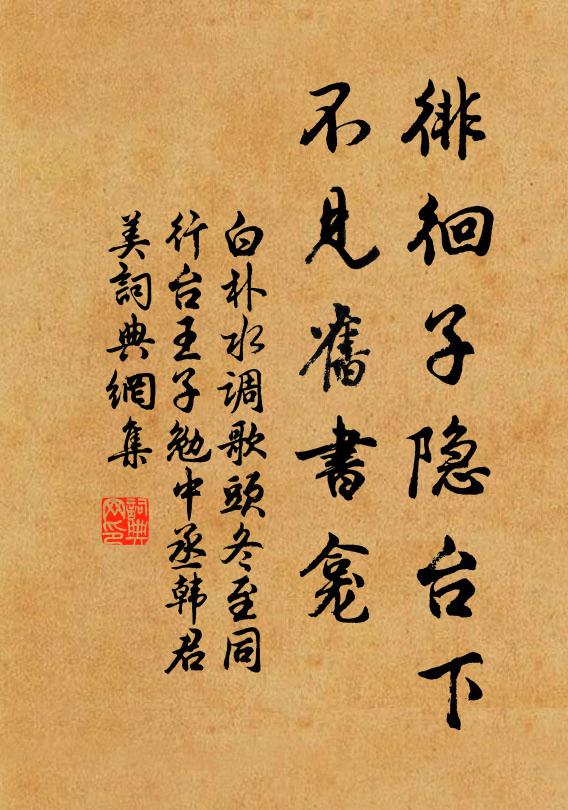 徘徊子隐台下
不見舊書龛
白朴水调歌頭冬至同
行台王子勉中丞韩君
美詞典網集
詞典
网印